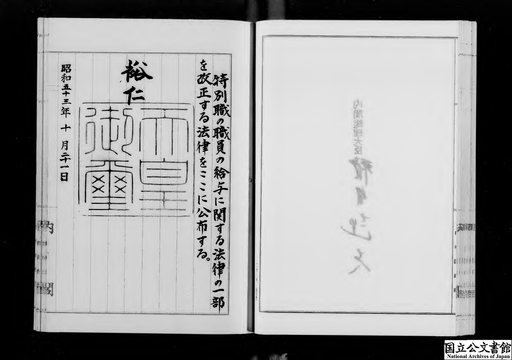 特別職の職員の給与に関する法律の一部
を改正する法律をここに公布する。
裕仁
天皇
御璽
昭和五十三年十月二十一日
内閣
内閣総理大臣
国立公文書館
National Archives of Japan